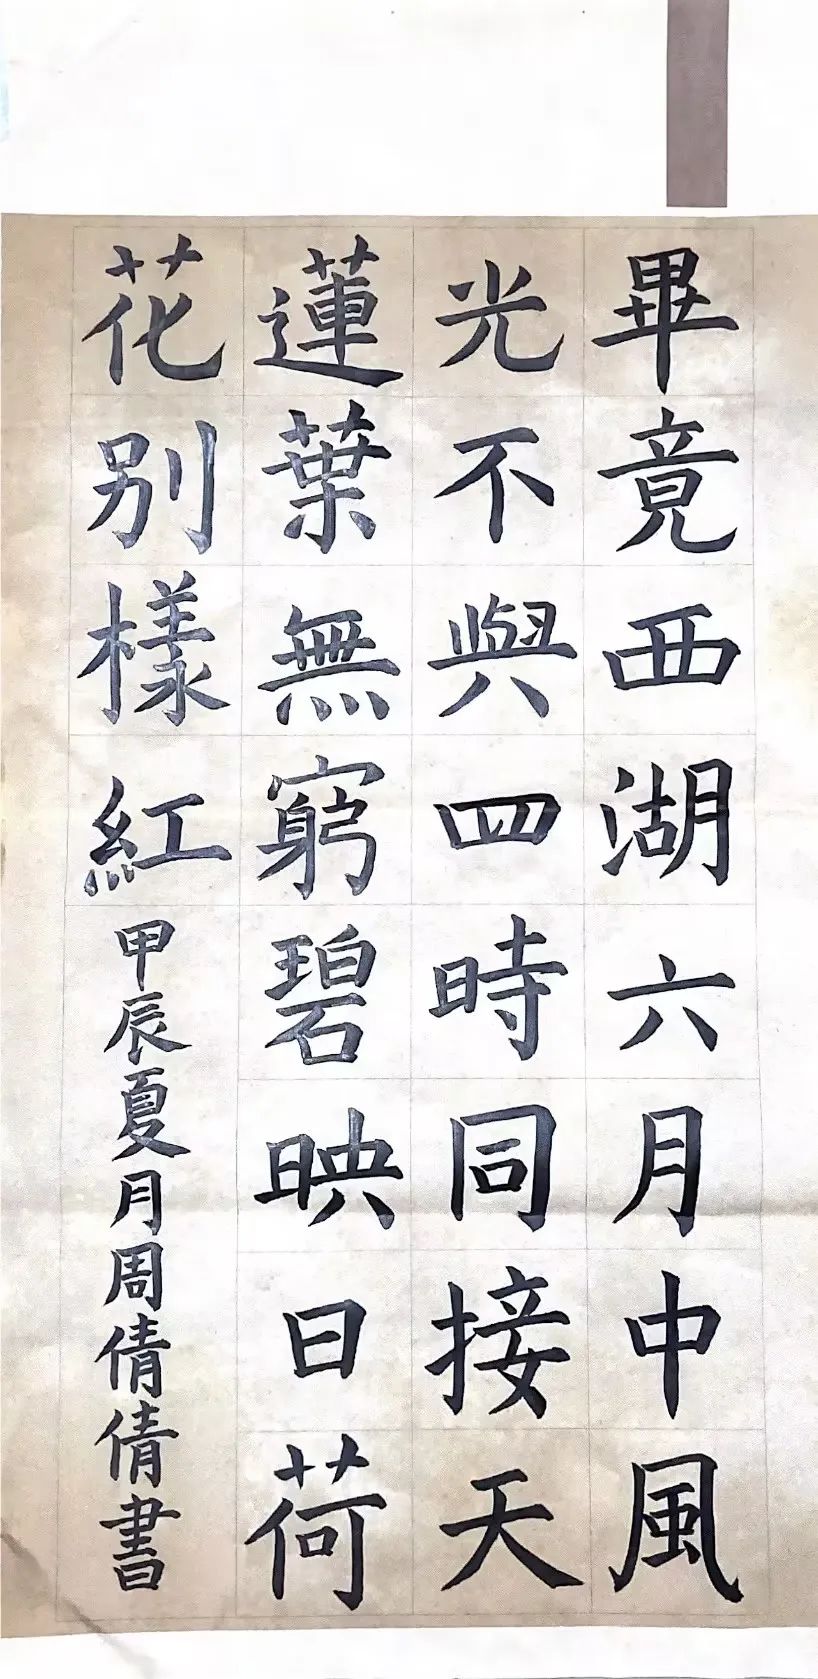 畢竟西湖六月中風
光不與四時同接天
蓮葉無窮碧映日荷
花别樣紅
甲辰夏月周倩倩書